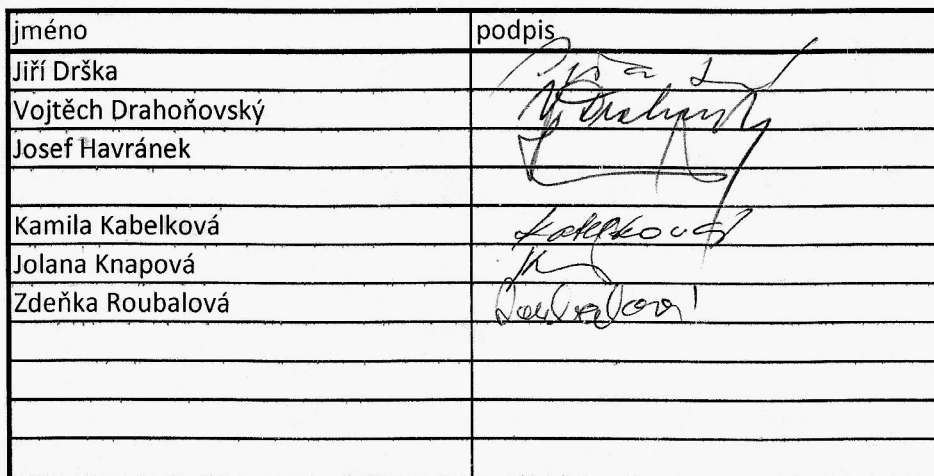 jméno podpis
Jiří Drška
Vojtěch Drahoňovský V Drahoňovský
Josef Havránek
Kamila Kabelková Kabelková
Jolana Knapová
Zdeňka Roubalová Roubalová